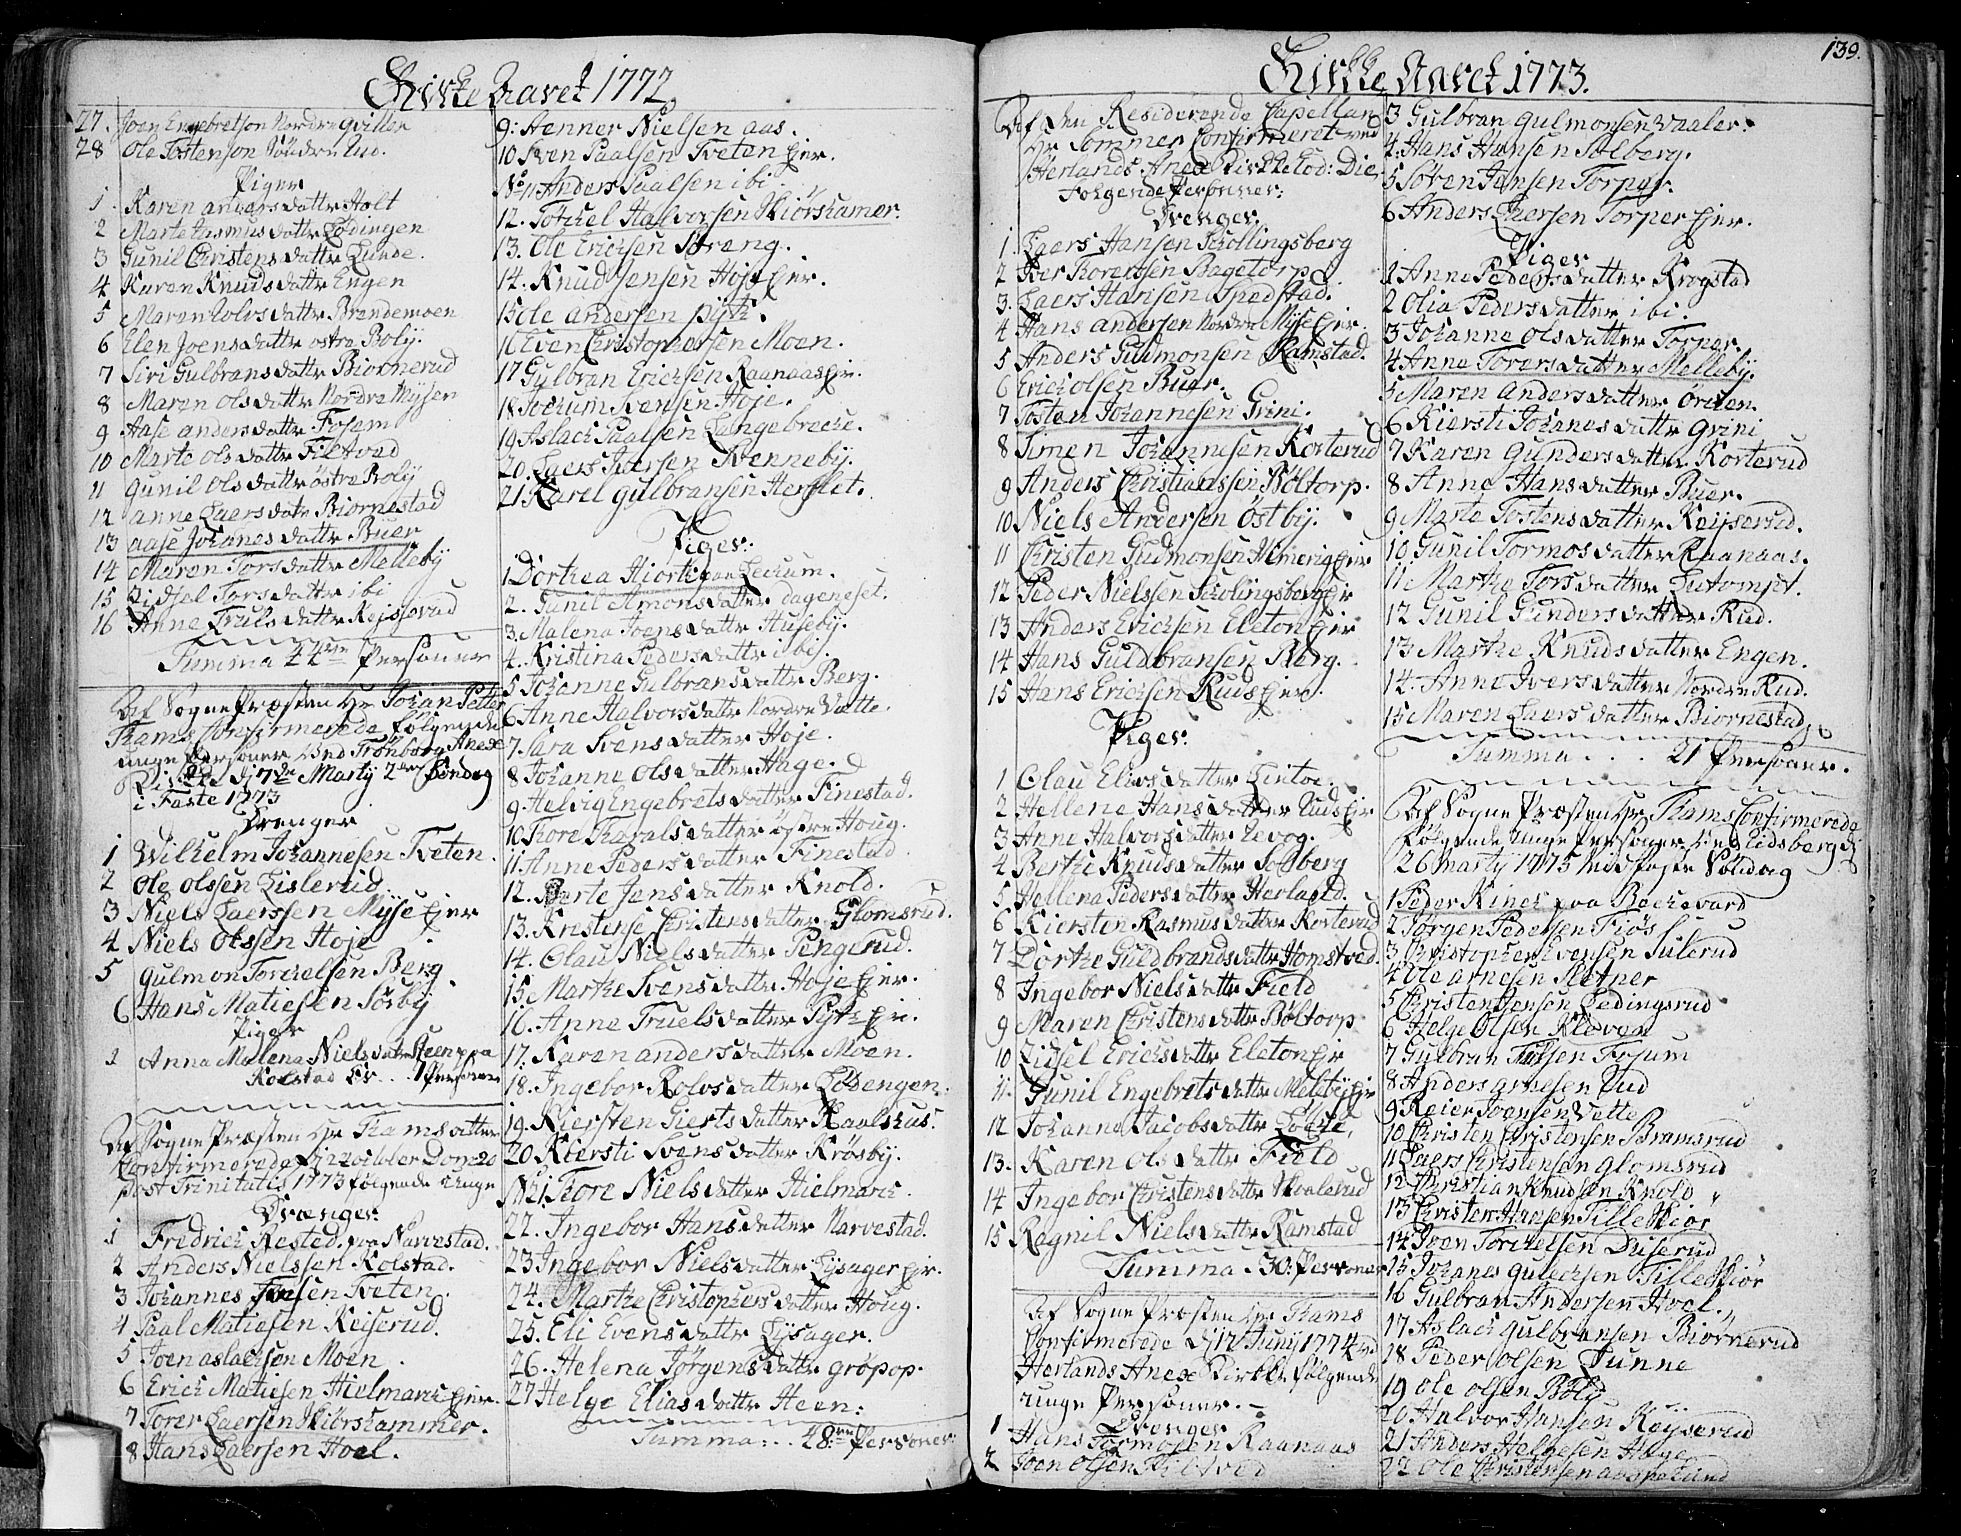 Kirke Aaret 1772.
27. Joen Engebretson Nordre
28 Ole Tostenson Söndre Rud.
Piger
1. Karen anders datter Holt
2 Marte Rasmus datter Lödingen
3 Gunil Christens datter Lunde.
4 Karen Knuds datter Engen
5 Maren Rolvs datter Brandemoen
6 Elen Joens datter östre Roly.
7 Siri Gulbrans datter Biörnerud
8 Maren Ols datter Nordre Mysen
9 Aase anders datter Fosem
10 Marte Ols datter Filtvad
11 Gunil Ols datter östre Roly
12 Anne Laers datr Biornestad
13 aase Johanes datter Buer
14 Maren Tors datter Melleby
15 Lidsel Tors datter ibi
16 Anne Truls datter Keiserud
Summa 44 Personer
Af Sogne Præsten Hr Johan Petter
Rams Confirmerede følgende
unge Personer ved Trömborg Anexe
Kirke Dj 7de Martij 2den Söndag
i Faste 1773
Drenger
1 Wilhelm Johannesen Tveten.
2 Ole olssen Lislerud.
3 Niels Laerssen Mysse Eier
4 Niels Olssen Hoje
5 Gulmon Torckelsen Berg
6 Hans Matiesen Sösby
Piger
1 Anna Malena Niels datr Heen paa
Kolstad Er... 7 Personer
Af Sogne Præsten Hr Rams atter
Confirmerede Dj October Dom 20
post Trinitatis 1773 følgende Unge
Drænger
1 Fredrich Rested paa Narvestad.
2 Anders Nielssen Kolstad.
3 Johannes Tveten.
4 Paal Matiesen Keiserud.
5 Joen aslacksen Moen.
6 Erich Matiesen Hielmarck Eier.
7 Torer Laersen Skiörshammer.
8 Hans Laersen Hoel.
9: Aenner Nielsen aas.
10 Sven Paalsen Tveten Eier.
No 11 Anders Paalsen ibi.
12. Torckel Halvorsen Skiörshamer.
13. Ole Ericksen Streng.
14. Knud Jensen Hoje Eier.
15 Ole andersen
16 Even Christophersen Moen.
17 Gulbran Ericksen Raanaas Er.
18. Jochum Svensen Hoje.
19. Aslach Paalsen Langebrecke.
20. Laers Iversen Svenneby.
21 Karel Gulbransen Herslet.
Piger.
1 Dorthea Hiorth paa Leckum.
2. Gunil Amons datter dageneset.
3. Malena Joens datter Huseby.
4. Kristina Peders datter Ibij.
5 Johanne Gulbrans datter Berg.
6 Anne Halvors datter Nordre Vatte.
7. Sara Svens datter Hoje.
8 Johanne Ols datter Hage.
9 Helvig Engebrets datter Finestad.
10 Thore Thovals datter östre Houg.
11. Anne Peders datter Finestad
12. Berte Jens datter Knold.
13. Kristense Christens datter Glomsrud.
14. Olau Niels datter Pengerud.
15. Marthe Svens datter Hoje Eier.
16. Anne Truels datter Eier.
17. Karen anders datter Moen.
18. Ingebor Rolvs datter Lösengen.
19. Kiersten Gierts datter Kaalshus.
20. Kiersti Svens datter Krösby.
No 21. Thore Niels datter Hielmarck.
22. Ingebor Hans datter Narvestad.
23 Ingebor Niels datter Lysager Er.
24. Marthe Christophers datter Houg.
25. Eli Evens datter Lysager.
26. Helena Jörgens datter gröpop.
27 Helge Elias datter Heen:
Summa:.. 48 Personer
Kirke Aaret 1773.
139.
Af den Residerende Capellan
Hr Sommer Confirmeret ved
Herlands Anex Kirke Eod: Die
Folgende Personer:
Drenger.
1. Laers Hansen Skollingsberg
2 Iver Torersen Bagetorp
3. Laers Hansen Spedstad.
4 Hans andersen Nordre Myse Eier.
5 Anders Gudmonsen Ramstad.
6 Erick olsen Buer.
7 Tosten Johannesen Grini.
8 Simen Johannesen Korterud
9 Anders Christiaessen Böltorp.
10 Niels Andersen Östby.
11 Christen Gudmonsen Hemerig Eier
12 Peder Nielssen Skolingsberg Eier
13 Anders Ericksen Eleton Eier
14 Hans Guldbransen Berg.
15 Hans Ericksen Ruds Eier.
Piger.
1 Olau Elias datter Lintoe.
2 Hellene Hans datter Ruds Eier
3 Anne Halvors datter
4 Berthe Knuds datter Solberg
5 Hellena Peders datter Herland.
6 Kiersten Rasmus datter Korterud
7 Dorthe Guldbrands datter Homstved.
8 Ingebor Niels datter Field
9 Maren Christens datter Böltorp
10 Lidsel Ericks datter Eleton Eier
11. Gunil Engebrets datter Melby Eier
12 Johanne Jacobs datter
13. Karen Ols datter Field
14 Ingebor Christens datter
15 Ragnil Niels datter Ramstad
Summa 30: Personer
Af Sogne Præsten Hr Rams
Confirmerede Dj 12 Junij 1774 ved
Herlands Anex Kirke følgende
unge Personer.
Drenger
1 Hans Tormosen Raanaas
2 Joen Olsen Filtved
3 Gulbran Gulmonsen Vaaler.
4. Hans Hansen Solberg.
5 Soren Jensen Torper
6 Anders Iversen Torper Eier.
Piger
1 Anne Peders datter Krogstad
2 Olia Peders datter ibi.
3 Johanne Ols datter Torper
4 Anne Torers datter Melleby.
5 Maren Anders datter Örsten.
6 Kiersti Johanes datter Grini
7 Karen Gunders datter Korterud
8 Anne Hans datter Buer.
9 Marte Tostens datter Keyserud.
10 Gunil Tormos datter Raanaas.
11 Marthe Tors datter Sutompt.
12 Gunil Gunders datter Rud.
13 Marthe Knuds datter Engen.
14. Anne Ivers datter Nordre Rud.
15 Maren Laers datter Biornestad
Summa... 21 Personer.
Af Sogne Præsten Hr Rams Confirmerede
følgende Unge Personer ved Eidsberg Dj
26 Martij 1775
1 Peder Kinck paa Beckevard
2 Jörgen Pedersen Fiös
3. Christopher Evensen Sulerud
4 Ole arnesen Sletner
5 Christen Jensen Ledingsrud
6 Helge Olsen Kleven
7 Gulbran Fosum
8 Anders arnesen Rud
9 Reier Joensen Vatte
10 Christen Christensen Bramsrud
11 Laers Christensen Glomsrud
12 Christian Knudsen Knold
13 Christen Hansen Tilleskiör
14 Iven Torckelsen Duserud
15 Johanes Gulecksen Tilleskiör
16 Gulbran Andersen Hoel.
17 Aslach Gulbransen Biörnerud
18 Peder olsen Tunne
19 Ole Olsen Roly
20 Halvor Hansen Keyserud
21 Anders Helgesen Hage
22 Ole Christensen